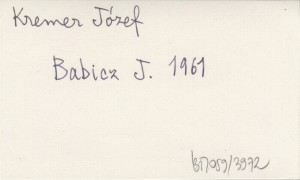 Kremer Józef
Babicz J. 1961
BJ/059/3972